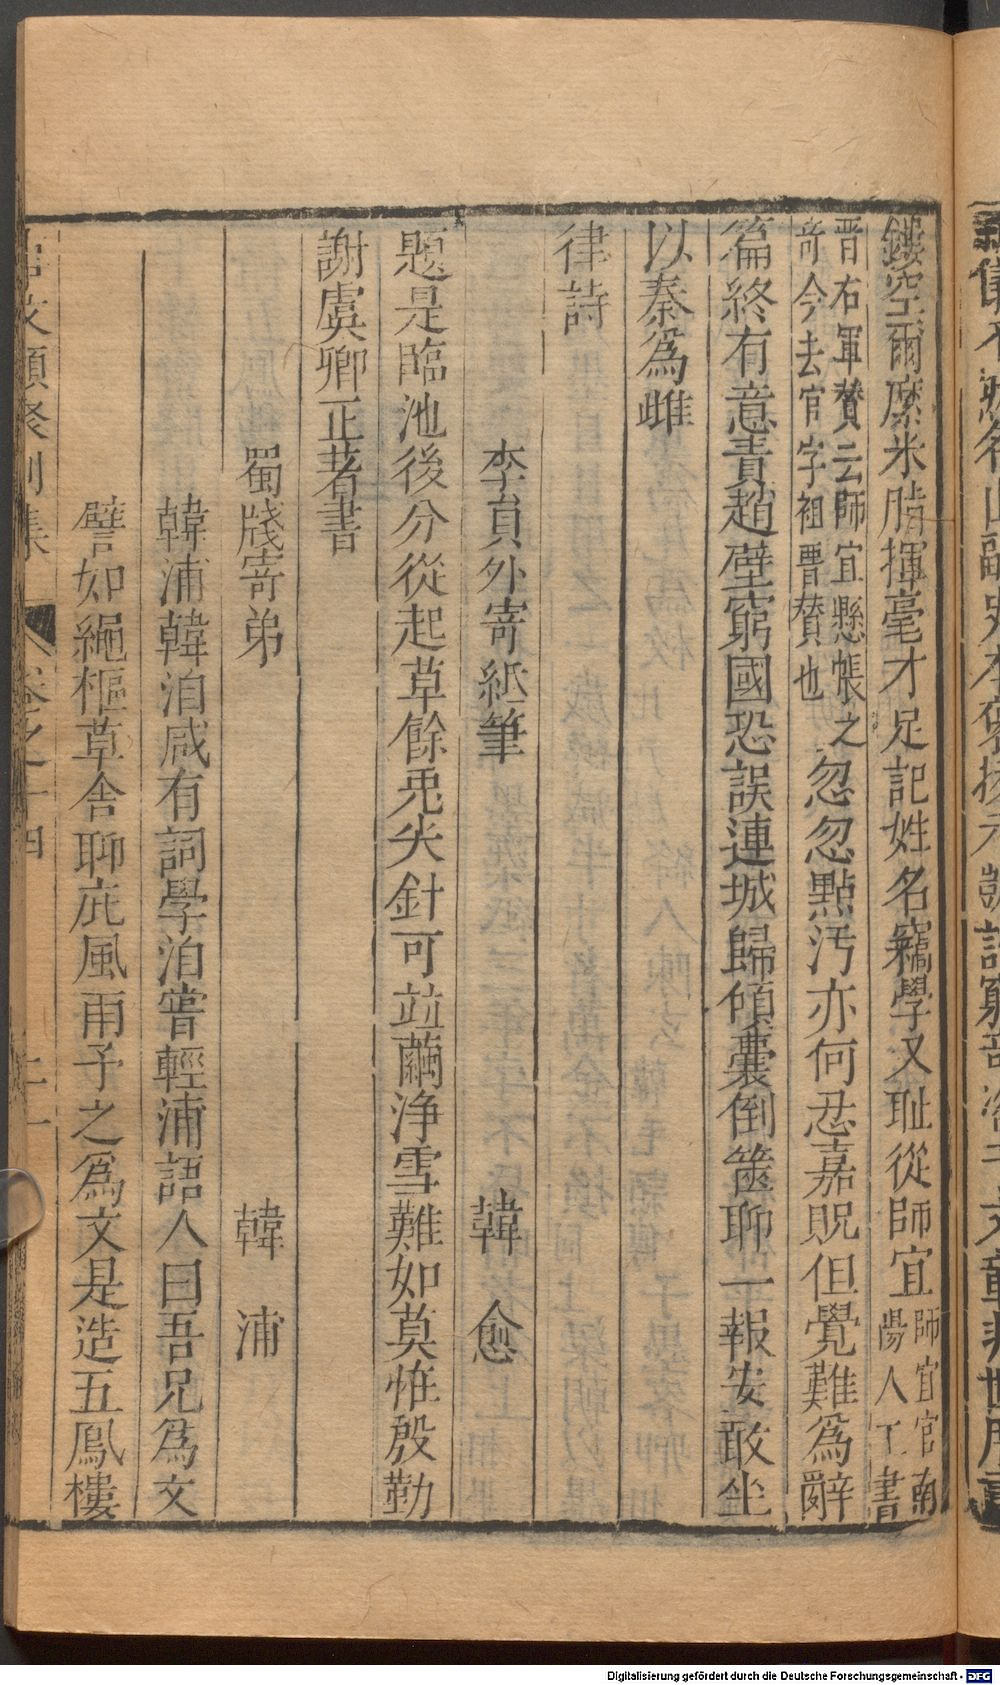 鏤空爾糜米腦揮毫才足記姓名竊學又耻從師宜師宜官南陽人工書
晋右軍賛云師宜懸帳之奇今去官字祖晋賛也忽忽點汚亦何忍嘉貺但覺難為辭
篇終有意責趙璧窮國恐誤連城歸傾囊倒篋聊一報安敢坐
以秦為雌
律詩
李員外寄紙筆 韓愈
題是臨池後分從起草餘兎尖針可並繭浄雪難如莫恠殷勤
謝虞卿正著書
蜀牋寄弟 韓浦
韓浦韓洎咸有詞學洎嘗輕浦語人曰吾兄為文
譬如繩樞草舍聊庇風雨予之為文是造五鳳樓
文類聚别集 卷之十四
Digitalisierung gefördert durch die Deutsche Forschungsgemeinschaft - DFG